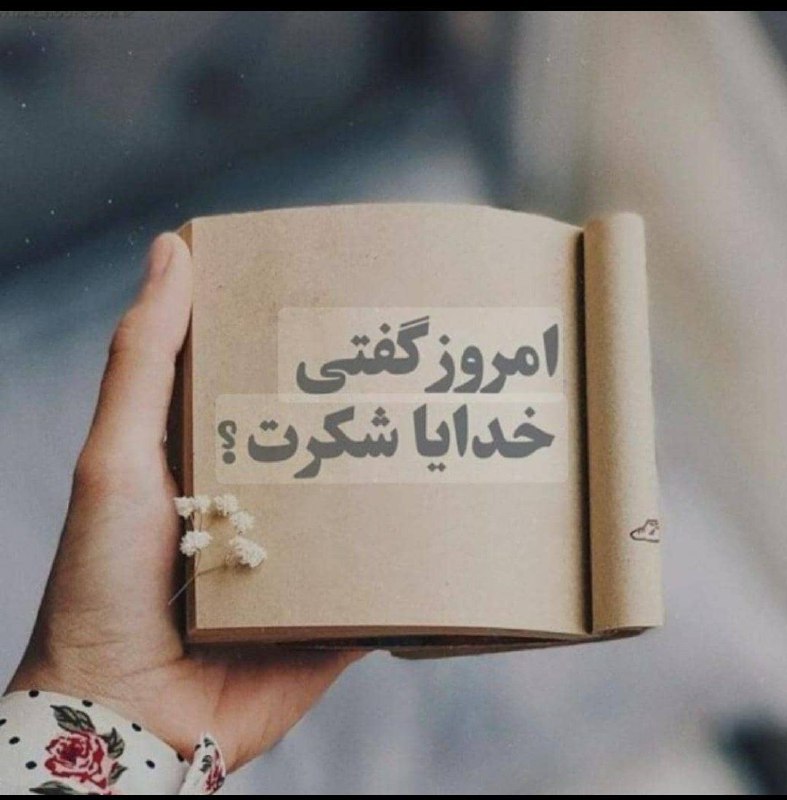 امروز گفتی
خدایا شکرت ؟